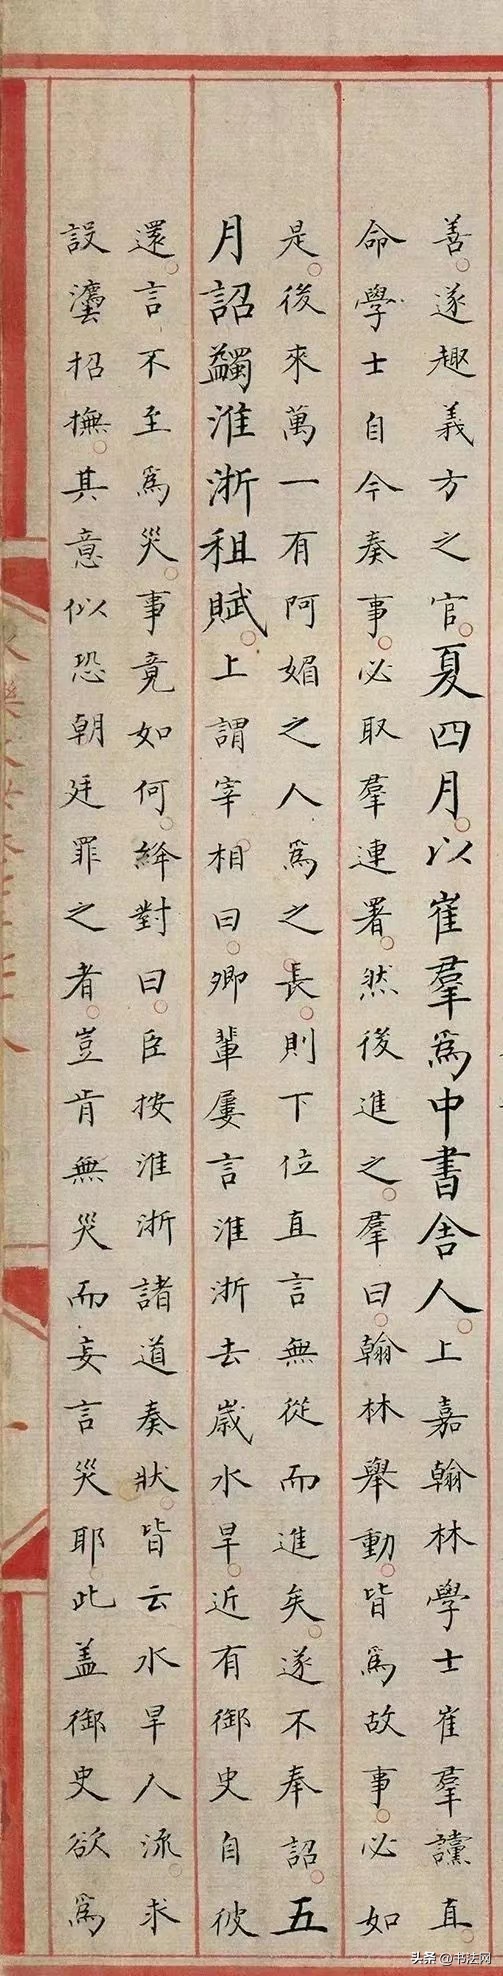 善遂趣義方之官夏四月以崔羣爲中書舍人上嘉翰林學士崔羣讜直
命學士自今奏事必取羣連署然後進之羣曰翰林舉動皆爲故事必如
是後來萬一有阿媚之人爲之長則下位直言無從而進矣遂不奉詔五
月詔蠲淮浙租賦上謂宰相曰卿輩屢言淮浙去歲水旱近有御史自彼
還言不至爲災事竟如何絳對曰臣按淮浙諸道奏狀皆云水旱人流求
設灋招撫其意似恐朝廷罪之者豈肯無災而妄言災耶此蓋御史欲爲
头条 @书法网